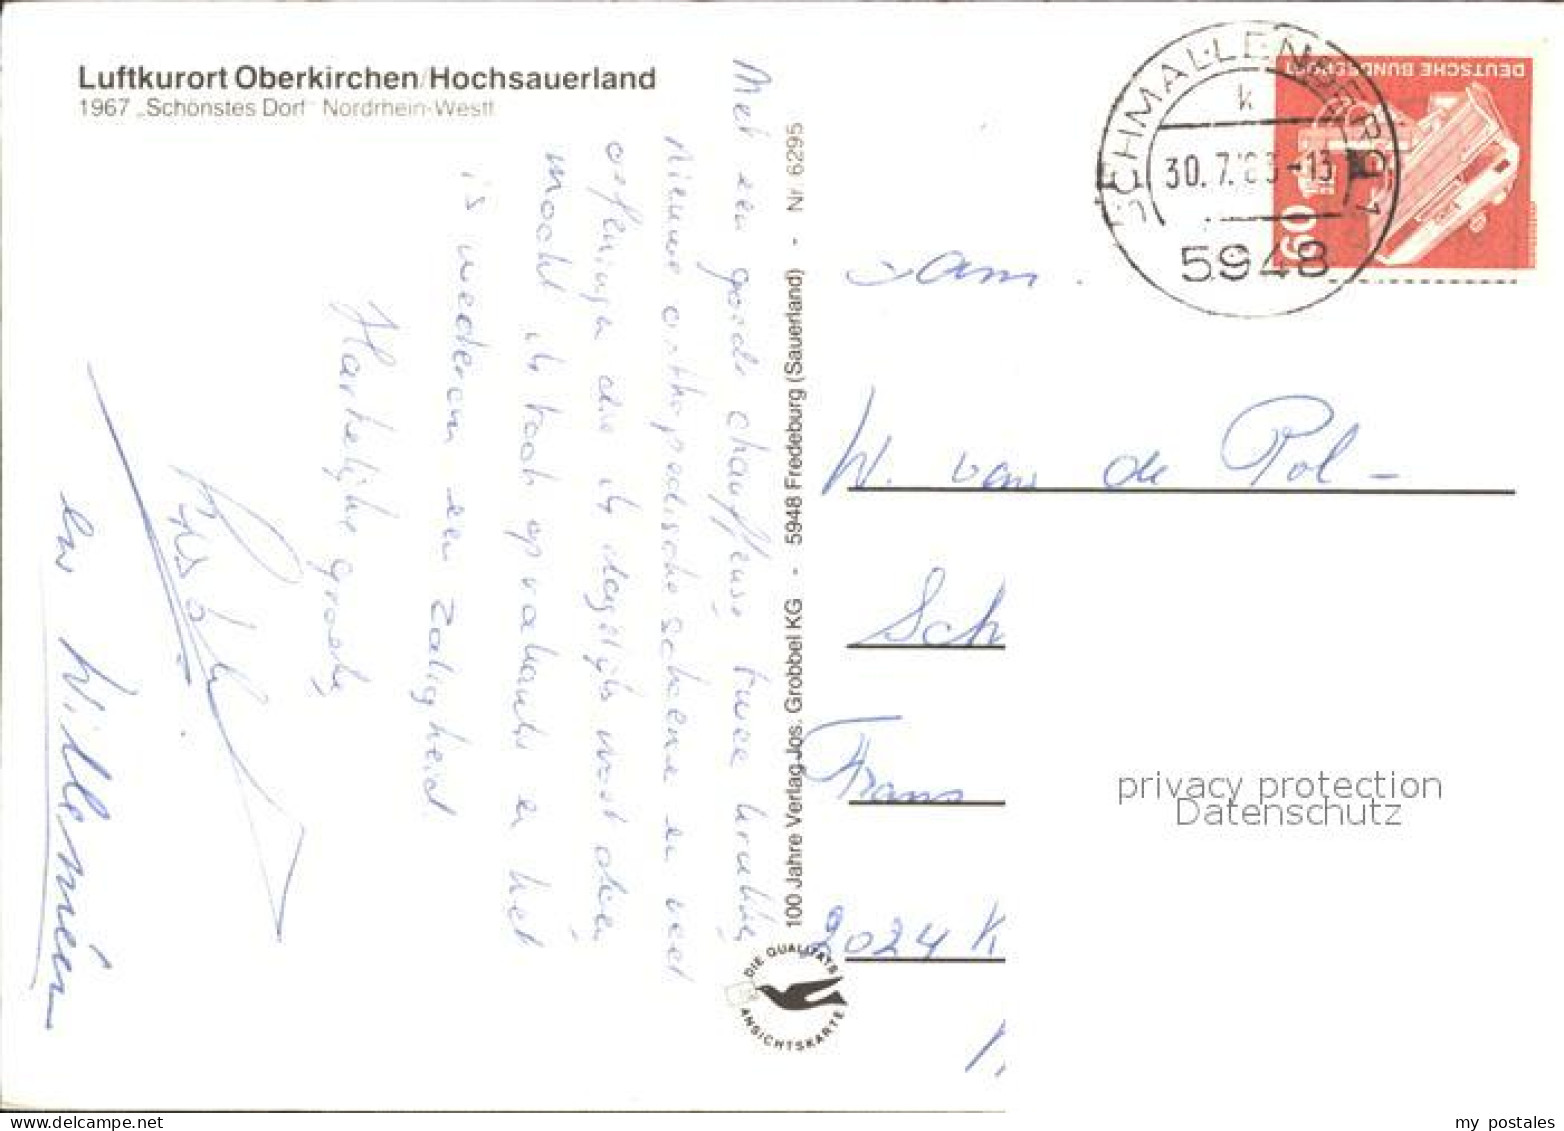 Luftkurort Oberkirchen/Hochsauerland
1967 „Schönstes Dorf" Nordrhein-Westf.
Met een goede chauffeuse twee krukken,
nieuwe orthopedische schoenen en veel
oefeningen die ik dagelijks moet doen,
mocht ik toch op vakantie en het
is wederom een zaligheid.
Hartelijke groeten
en Willemien
100 Jahre Verlag Jos. Grobbel KG - 5948 Fredeburg (Sauerland) - Nr. 6295
DIE QUALITÄTS
ANSICHTSKARTE
SCHMALLENBERG 1
k
30.7.83-13
5948
DEUTSCHE BUNDESPOST
60
Fam.
W. van de Pol -
Sch
Frans
2024 K
privacy protection
Datenschutz
my postales
www.delcampe.net